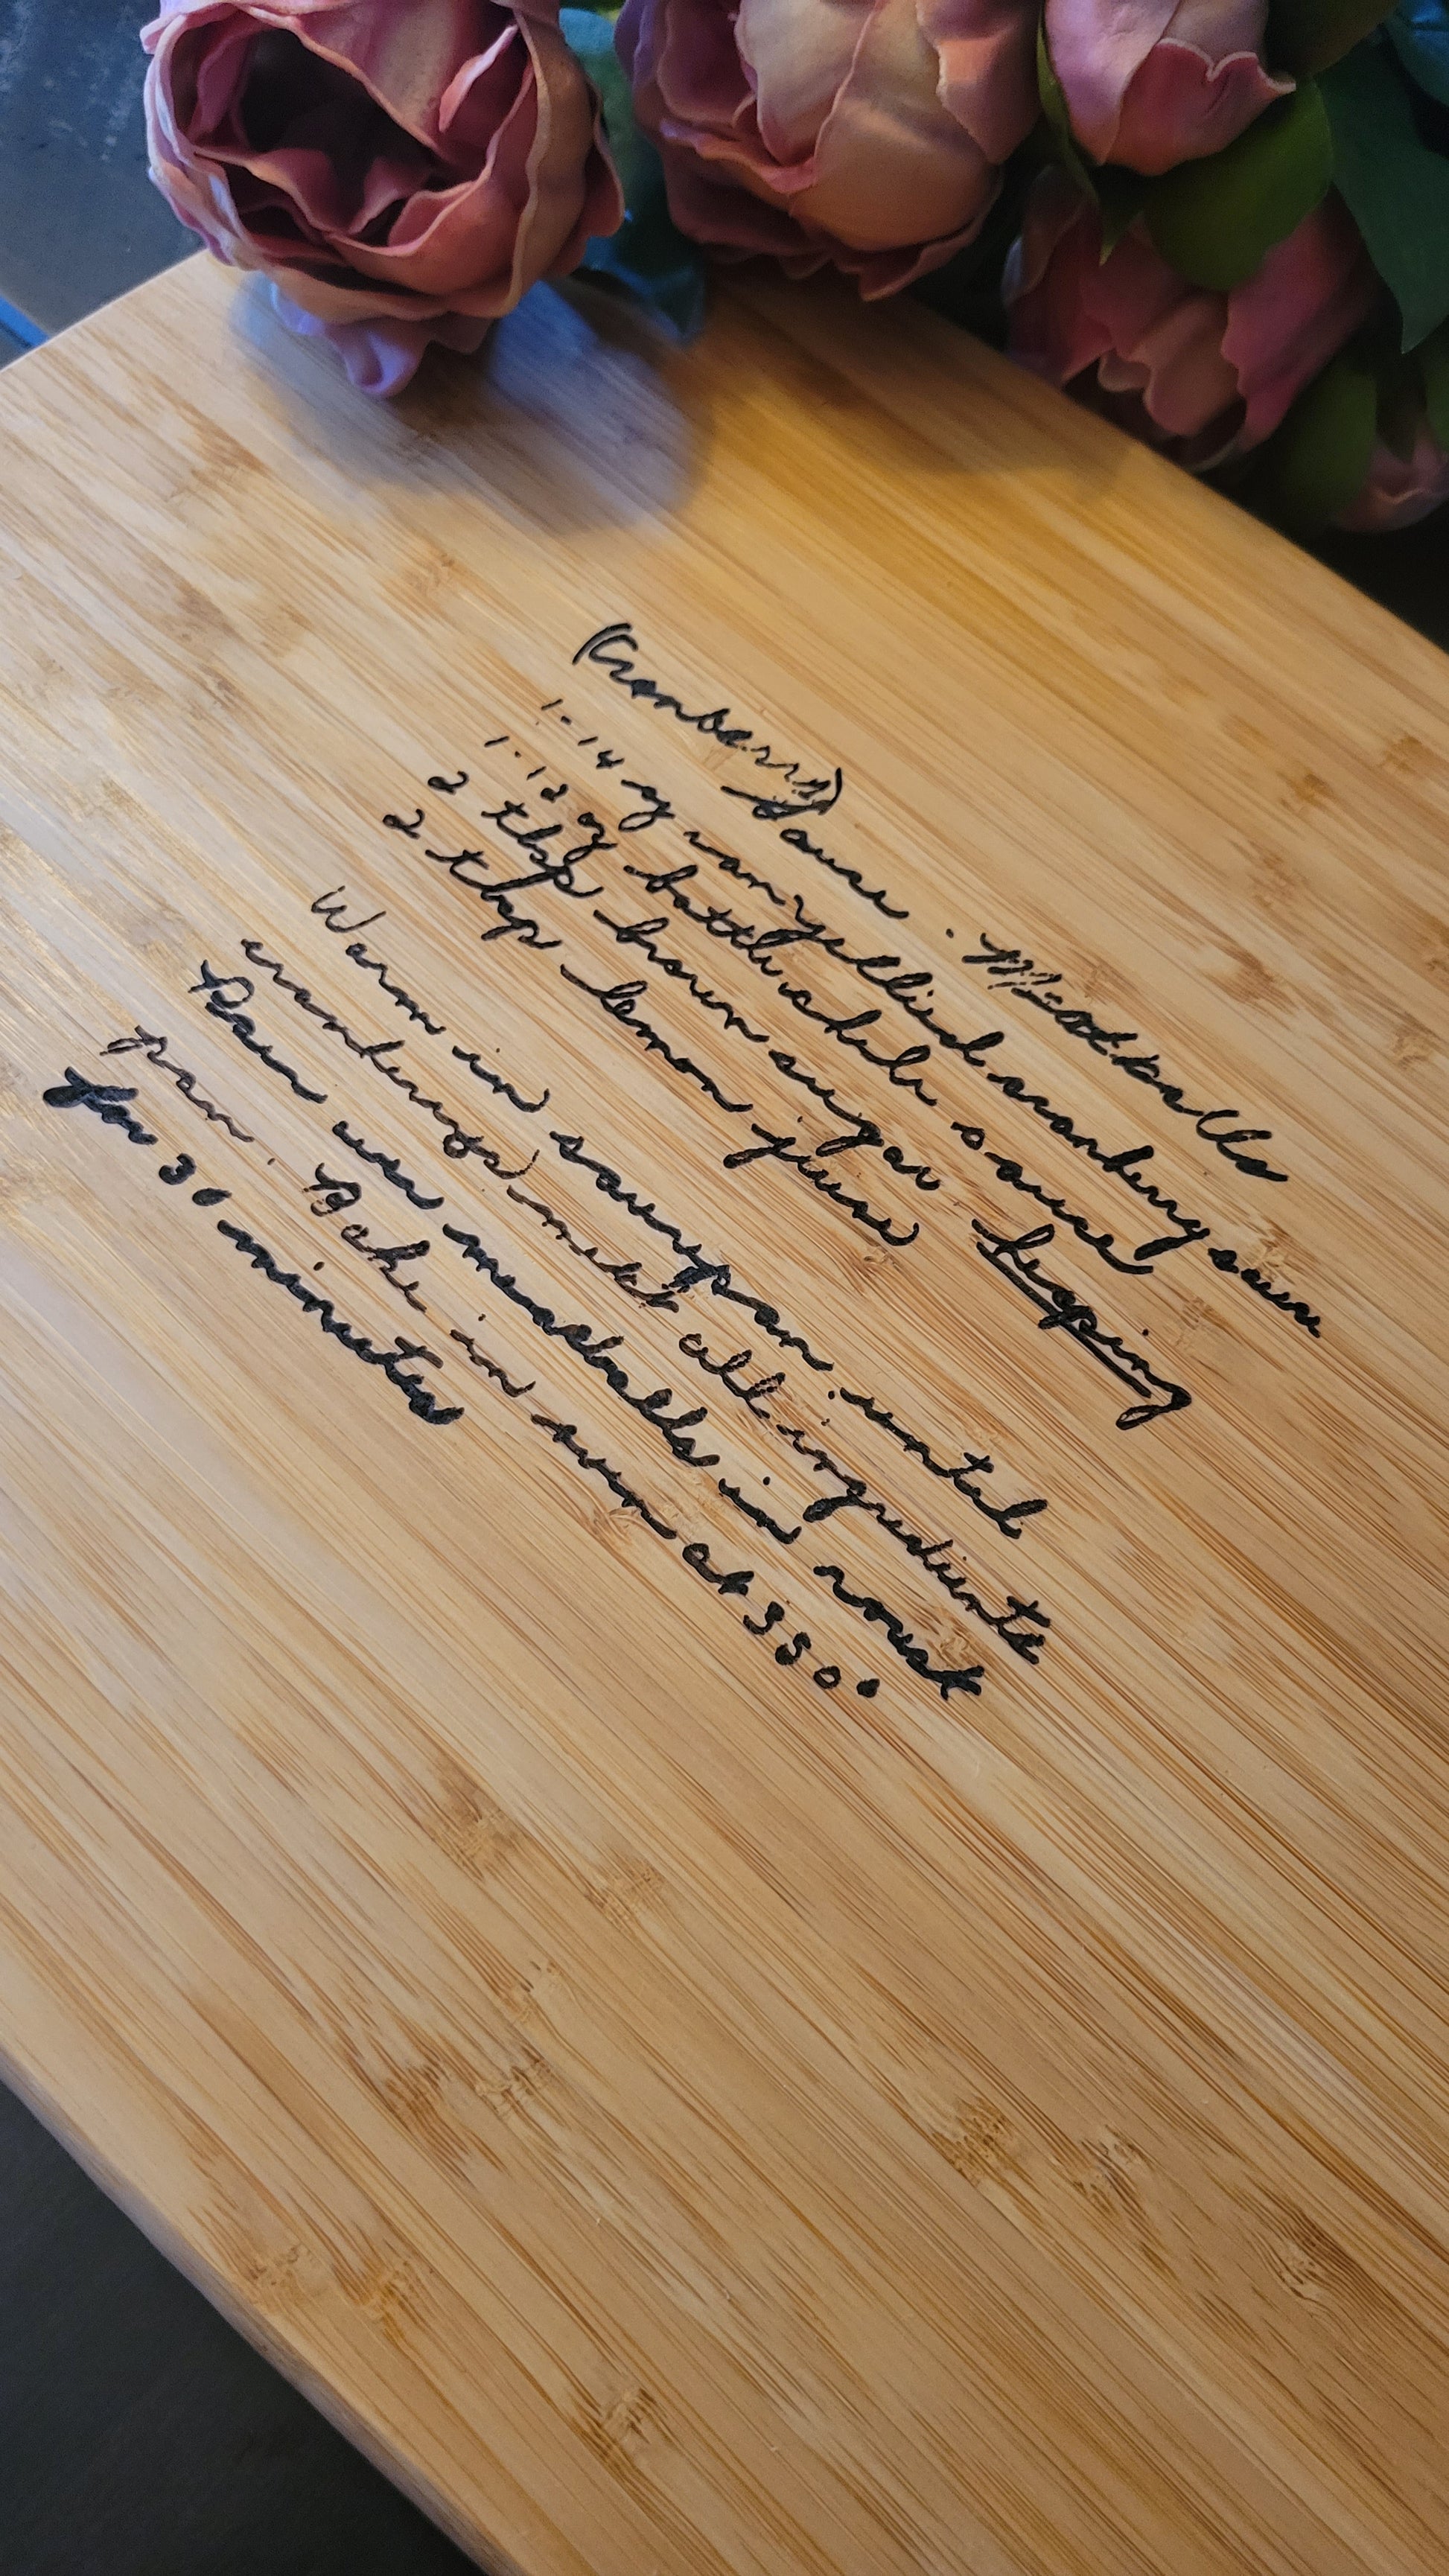 (Cranberry) Sauce - Meatballs
1-14 oz can jellied cranberry sauce
1-12 oz bottle chile sauce
2 tbsp brown sugar heaping
2 tbsp lemon juice
Warm in saucepan until
cranberrys melt all ingredients
Pour over meatballs in roast
pan. Bake in oven at 350°
for 30 minutes